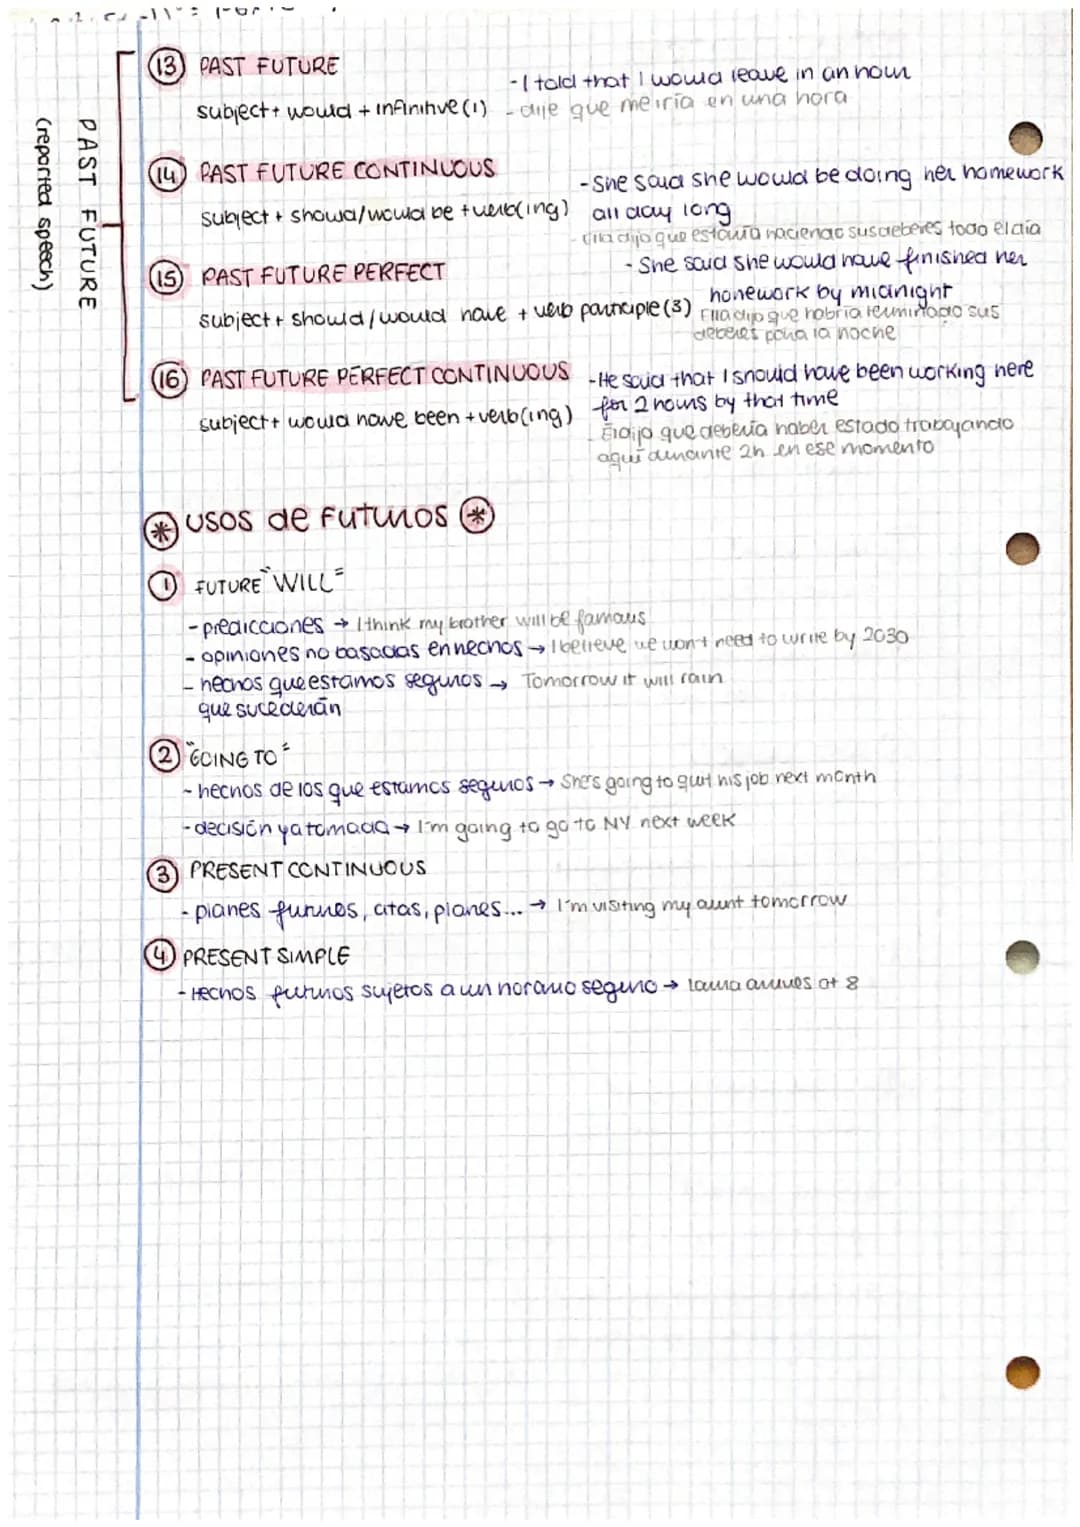 PAST FUTURE
(reported speech)
13 PAST FUTURE
- I told that I would leave in an hour
subject + would + infinitive (1) - dije que me iría en una hora
14 PAST FUTURE CONTINUOUS
- She said she would be doing her homework
subject + should/would be + verb(ing) all day long
- Ella dijo que estaría haciendo sus deberes todo el día
15 PAST FUTURE PERFECT
- She said she would have finished her
homework by midnight
subject + should/would have + verb participle (3)
Ella dijo que habría terminado sus
deberes para la noche
16 PAST FUTURE PERFECT CONTINUOUS - He said that I should have been working here
subject + would have been + verb(ing) for 2 hours by that time
- Él dijo que debería haber estado trabajando
aquí durante 2h en ese momento
* USOS de FUTUROS *
1 FUTURE "WILL"
- predicciones → I think my brother will be famous
- opiniones no basadas en hechos → I believe we won't need to write by 2030
- hechos que estamos seguros → Tomorrow it will rain
que sucederán
2 "GOING TO"
- hechos de los que estamos seguros → She's going to quit his job next month
- decisión ya tomada → I'm going to go to NY next week
3 PRESENT CONTINUOUS
- planes futuros, citas, planes... → I'm visiting my aunt tomorrow
4 PRESENT SIMPLE
- Hechos futuros sujetos a un horario seguro → Laura arrives at 8